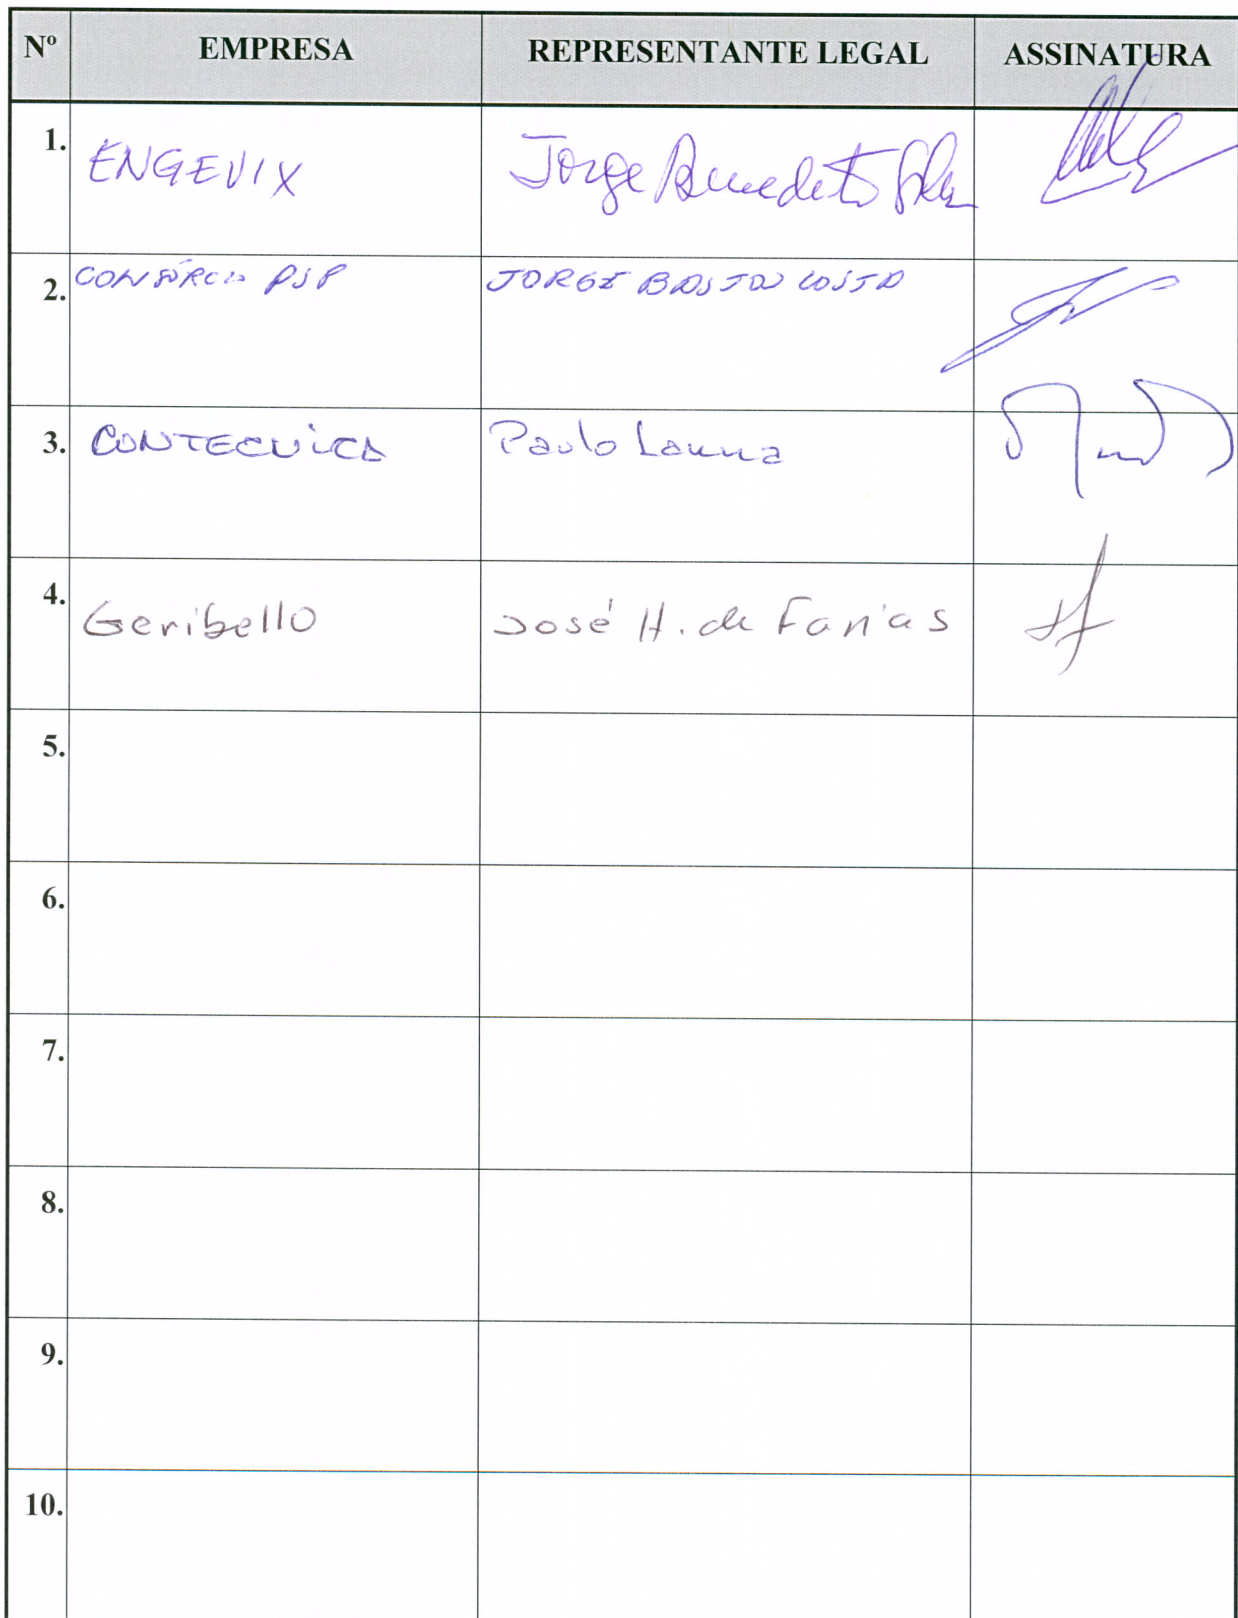 Nº EMPRESA REPRESENTANTE LEGAL ASSINATURA
1. ENGEVIX Jorge Benedeto
2. CONSÓRCIO PSP JORGE BASTOS COSTA
3. CONTECNICA Paulo Lanna
4. Geribello José H. de Farias
5.
6.
7.
8.
9.
10.